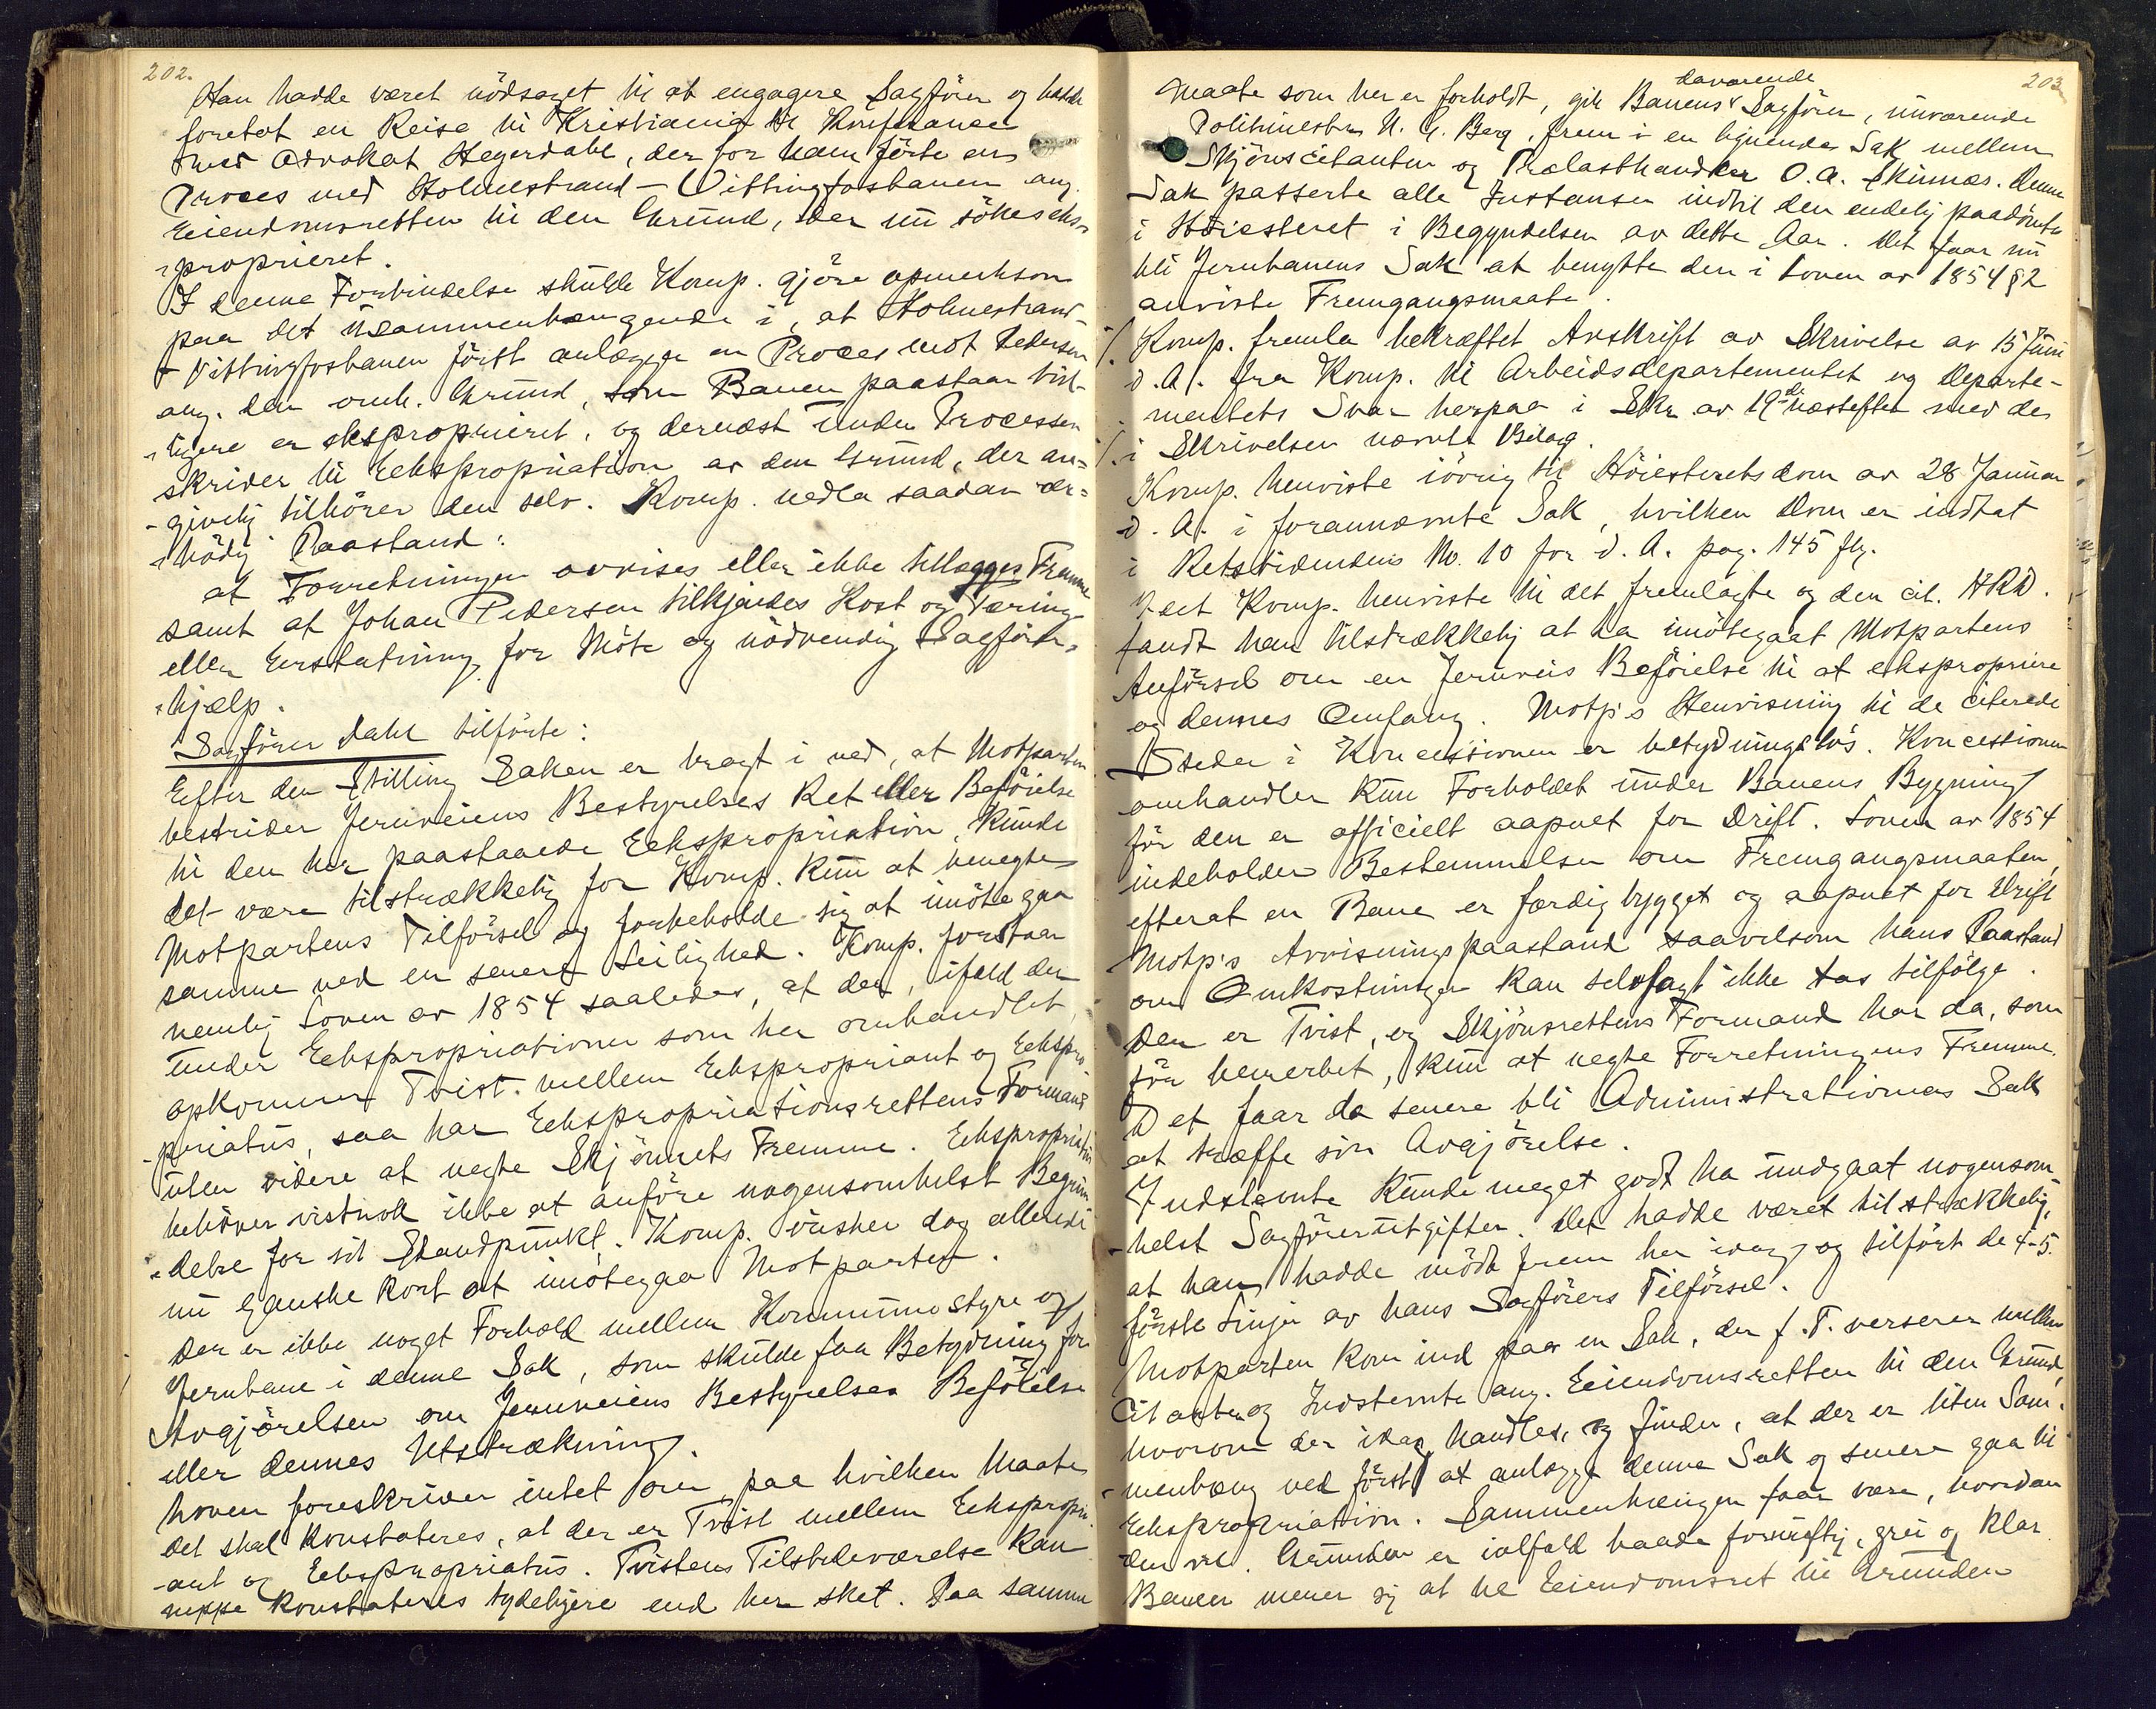 202.
Han hadde været nödsaget til at engagere Sagförer og hadde
foretat en Reise til Kristiania til Konferance
med Advokat Hegerdahl, der for ham förte en
Proces med Holmestrand - Vittingfosbanen ang.
Eiendomsretten til den Grund, der nu sökes eks-
-proprieret.
I denne Forbindelse skulde Komp. gjöre opmerksom
paa det usammenhængende i, at Holmestrand
- Vittingfosbanen först anlægger en Proces mot Pedersen
ang. den omh. Grund, som Banen paastaar tid-
-ligere er eksproprieret, og dernæst under Processen
skrider til Ekspropriation av den Grund, der an-
-givelig tilhörer den selv. Komp. nedla saadan ær-
-bödig Paastand:
at Forretningen avvises eller ikke tillægges Fremme
samt at Johan Pedersen tilkjendes Kost og Tæring
eller Erstatning for Möte og nödvendig Sagförer-
-hjælp.
Sagförer Dahl tilförte:
Efter den Stilling Saken er bragt i ved, at Motparten
bestrider Jernveiens Bestyrelses Ret eller Beföielse
til den her paastaaede Ekspropriation, kunde
det være tilstrækkelig for Komp. kun at benegte
Motpartens Tilförsel og forbeholde sig at imötegaa
samme ved en senere Leilighed. Komp. forstaar
nemlig Loven av 1854 saaledes, at der, ifald der
under Ekspropriationer som her omhandlet,
opkommer Tvist mellem Ekspropriant og Ekspro-
-priatus, saa har Ekspropriationsrettens Formand
uten videre at negte Skjönnets Fremme. Ekspropriatus
behöver vistnok ikke at anföre nogensomhelst Begrun-
-delse for sit Standpunkt. Komp. önsker dog allerede
nu ganske kort at imötegaa Motparten.
Der er ikke noget Forhold mellem Kommunestyre og
Jernbane i denne Sak, som skulde faa Betydning for
Avgjörelsen om Jernveiens Bestyrelses Beföielse
eller dennes Utstrækning.
Loven foreskriver intet om, paa hvilken Maate
det skal konstateres, at der er Tvist mellem Ekspropri-
-ant og Ekspropriatus. Tvistens Tilstedeværelse kan
neppe konstateres tydeligere end her sket. Paa samme
203
Maate som her er forholdt, gik Banens daværende Sagförer, nuværende
Politimester N. G. Berg, frem i en lignende Sak mellem
Skjönscitanten og Trælasthandler O. A. Skinnes. Denne
Sak passerte alle Instanser indtil den endelig paadömtes
i Höiesteret i Begyndelsen av dette Aar. Det faar nu
bli Jernbanens Sak at benytte den i Loven av 1854 § 2
anviste Fremgangsmaate.
./. Komp. fremla bekræftet Avskrift av Skrivelse av 15 Juni
d. A. fra Komp. til Arbeidsdepartementet og Departe-
-mentets Svar herpaa i Skr. av 19de næstefter med de
./. i Skrivelsen nævnte Bilag.
Komp. henviste iövrig til Höiesteretsdom av 28 Januar
d. A. i forannævnte Sak, hvilken Dom er indtat
i Retstidendens No. 10 for d. A. pag. 145 flg.
Idet Komp. henviste til det fremlagte og den cit. HRD.
fandt han tilstrækkelig at ha imötegaat Motpartens
Anförsel om en Jernveis Beföielse til at ekspropriere
og dennes Omfang. Motp's Henvisning til de citerede
Steder i Koncessionen er betydningslös. Koncessionen
omhandler kun Forholdet under Banens Bygning
för den er officielt aapnet for Drift. Loven av 1854
indeholder Bestemmelser om Fremgangsmaaten,
efterat en Bane er færdig bygget og aapnet for Drift
Motp's Avvisningspaastand saavelsom hans Paastand
om Omkostninger kan selvsagt ikke tas tilfölge.
Der er Tvist, og Skjönsrettens Formand har da, som
för bemerket, kun at negte Forretningens Fremme.
Det faar da senere bli Administrationens Sak
at træffe sin Avgjörelse.
Indstevnte kunde meget godt ha undgaat nogensom-
-helst Sagförerutgifter. Det hadde været tilstrækkelig,
at han hadde mödt frem her idag og tilfört de 4-5
förste Linjer av hans Sagförers Tilförsel.
Motparten kom ind paa en Sak, der f. T. verserer mellem
Citanten og Indstevnte ang. Eiendomsretten til den Grund,
hvorom der idag handles, og finder, at der er liten Sam-
-menhæng ved först at anlægge denne Sak og senere gaa til
Ekspropriation. Sammenhængen faar være, hvordan
den vil. Grunden er ialfald baade fornuftig, grei og klar.
Banen mener sig at ha Eiendomsret til Grunden